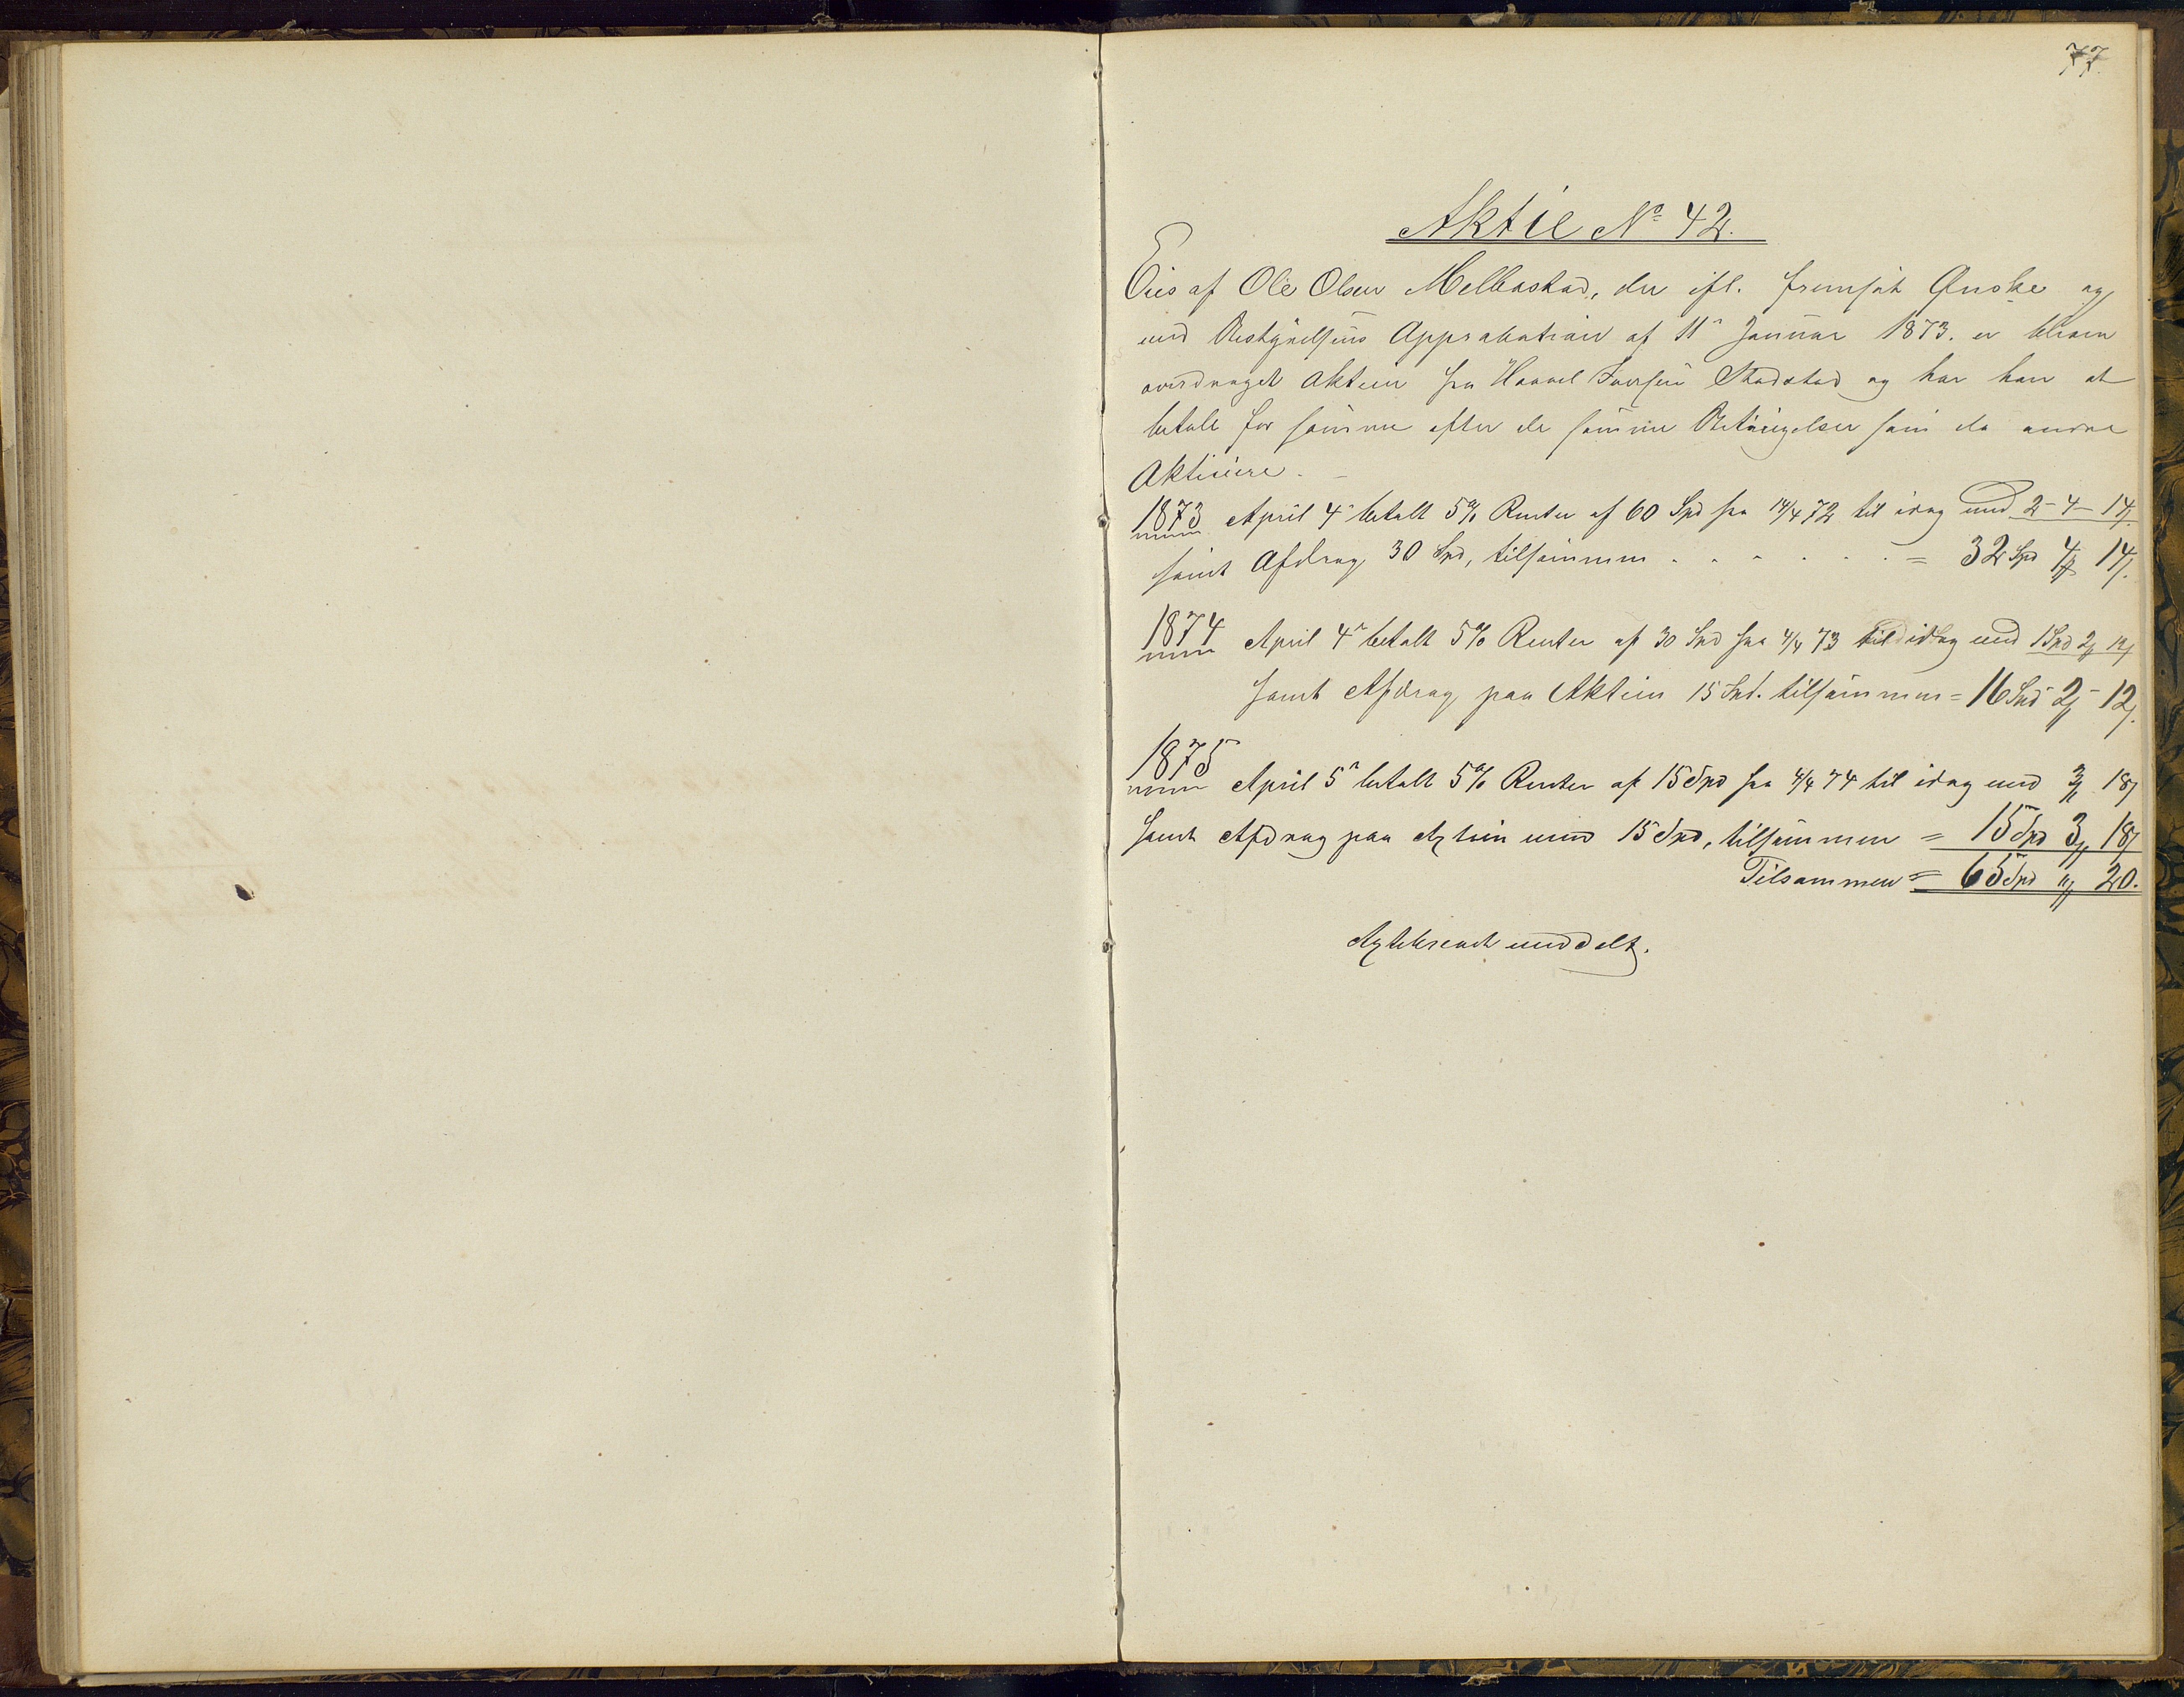 77.
Aktie No 42.
Eies af Ole Olsen Melbostad, der ifl. fremsat Ønske og
med Bestyrelsens Approbation af 11te Januar 1873. er bleven
overdraget Aktien fra Haavel Iversen Stadstad og har han at
betale for samme efter de samme Betingelser som de andre
Aktieiere.
1873 April 4de betalt 5% Renter af 60 Spd fra 14/4 72 til idag med 2-4-14
samt Afdrag 30 Spd, tilsammen . . . . . . = 32 Spd 4 14.
1874 April 4de betalt 5% Renter af 30 Spd fra 4/4 73 til idag med 1 Spd 2 12
samt Afdrag paa Aktien 15 Spd. tilsammen = 16 Spd 2 - 12.
1875 April 5te betalt 5% Renter af 15 Spd fra 4/4 74 til idag med 3 18
samt Afdrag paa Aktien med 15 Spd, tilsammen = 15 Spd 3 18
Tilsammen = 65 Spd " 20.
Aktiebrevet meddelt.